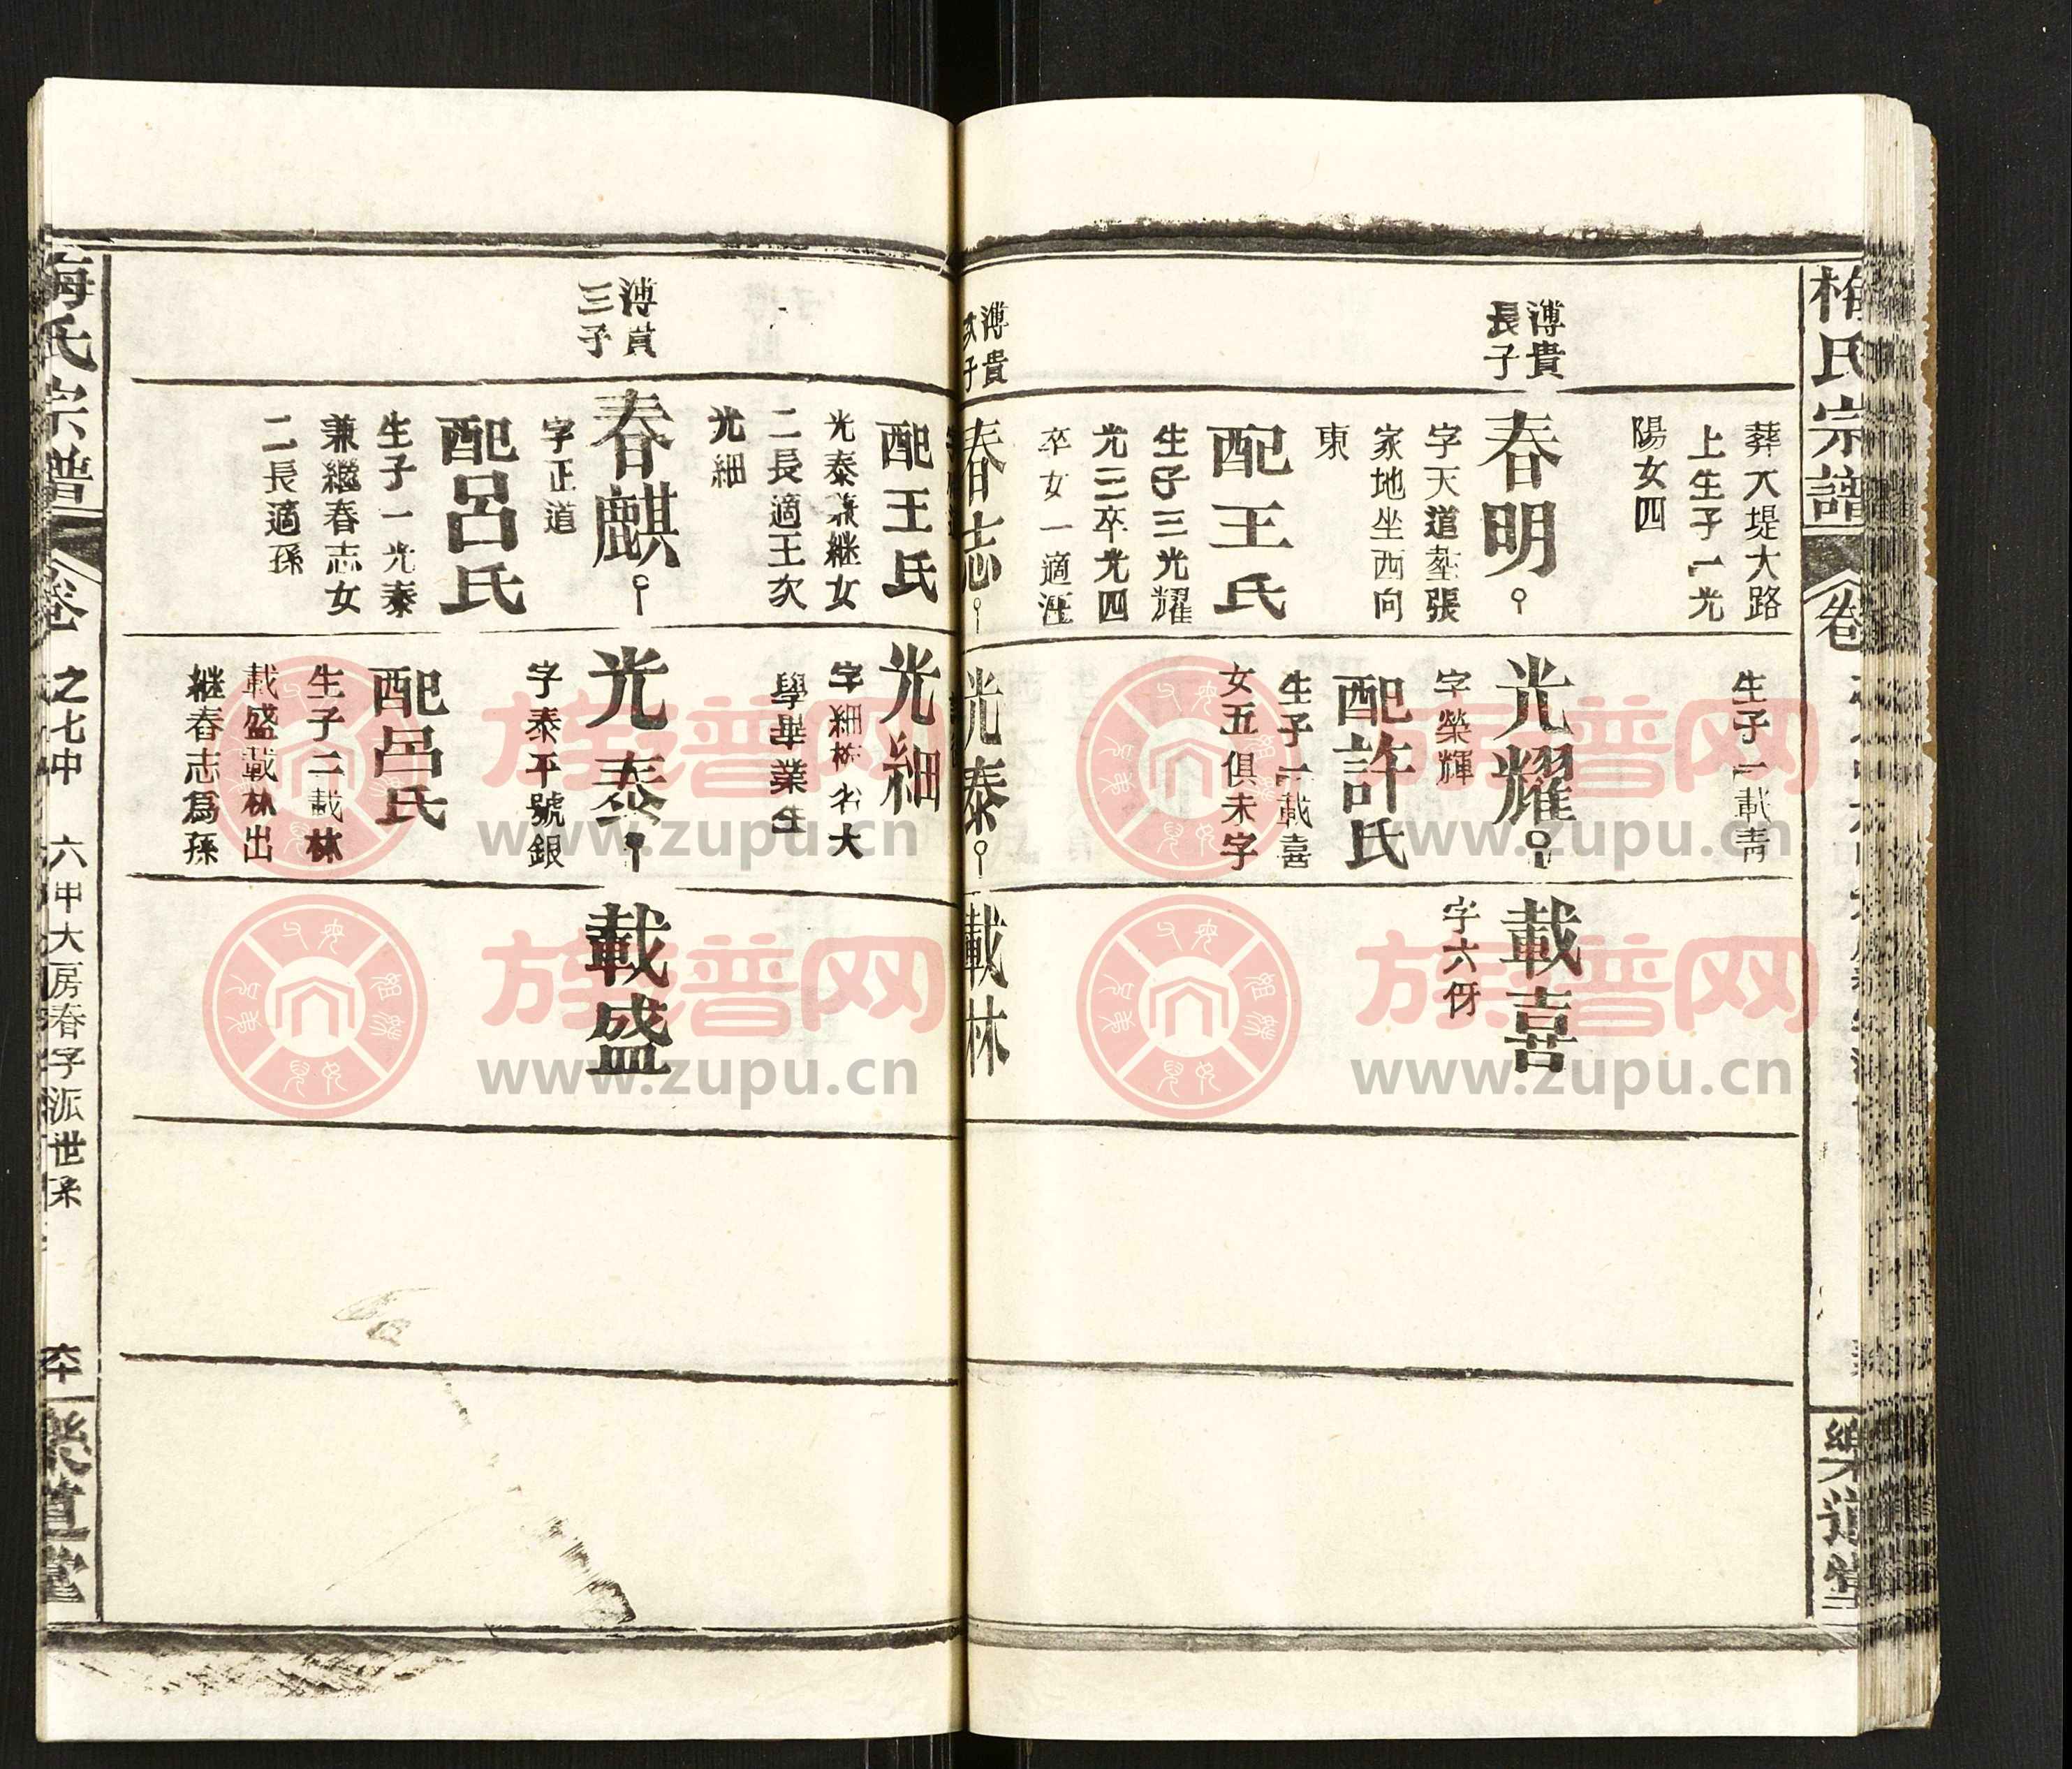 梅氏宗譜
卷
樂道堂
葬大堤大路
上生子一光
陽女四
生子一載青
溥貴
長子
春明
字天道塟張
家地坐西向
東
配王氏
生子三光耀
光三卒光四
卒女一適涯
光耀
字榮輝
配許氏
生子一載喜
女五俱未字
載喜
字六伢
溥貴
次子
春志
光泰
載林
配王氏
光泰兼継女
二長適王次
光細
光細
字細栋名大
學畢業生
溥貴
三子
春麒
字正道
配呂氏
生子一光泰
兼繼春志女
二長適孫
光泰
字泰平號銀
配呂氏
生子二載林
載盛載林出
継春志爲孫
載盛
梅氏宗譜
卷
之七中
六甲大房春字派世系
六十
樂道堂
族譜网
www.zupu.cn
族譜网
www.zupu.cn
族譜网
www.zupu.cn
族譜网
www.zupu.cn